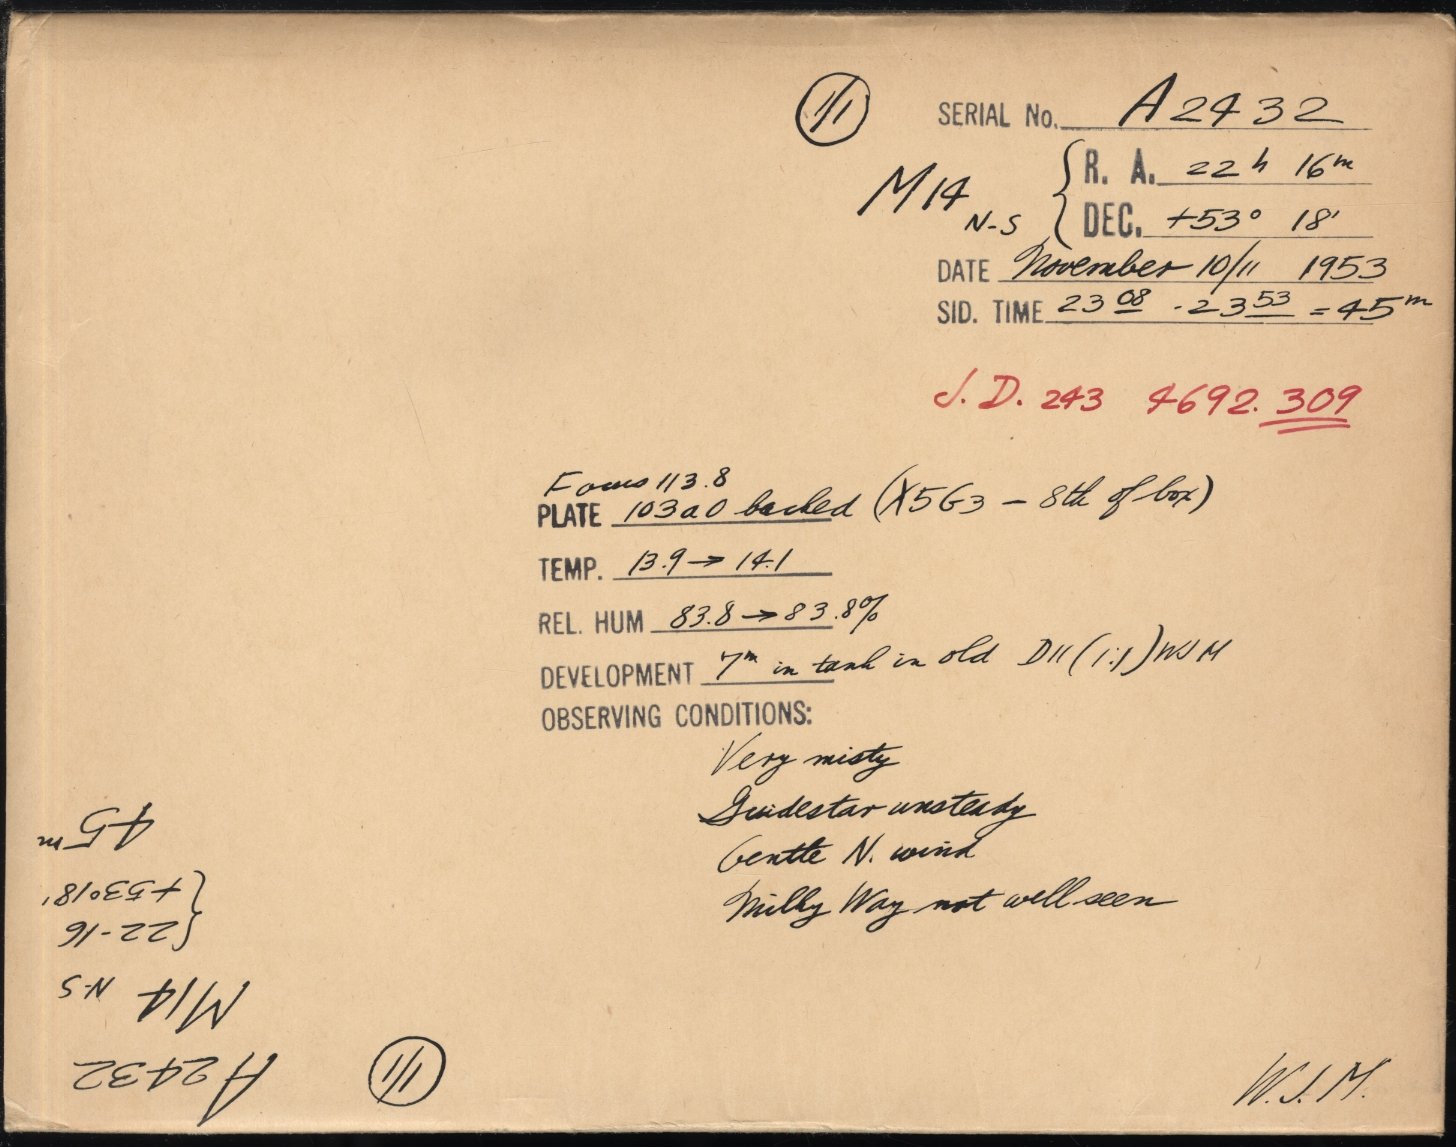 SERIAL No. A2432
M14 N-S { R. A. 22 h 16m
DEC. +53° 18'
DATE November 10/11 1953
SID. TIME 23 08 - 23 53 = 45m
J. D. 243 4692.309
Focus 113.8
PLATE 103a0 backed (X5G3 - 8th of box)
TEMP. 13.9 → 14.1
REL. HUM 83.8 → 83.8%
DEVELOPMENT 7m in tank in old D11 (1:1) WJM
OBSERVING CONDITIONS:
Very misty
Guidestar unsteady
Gentle N. wind
Milky Way not well seen
W.J.M.
A2432
M14 N-S
{ 22-16
+53°18'
45m